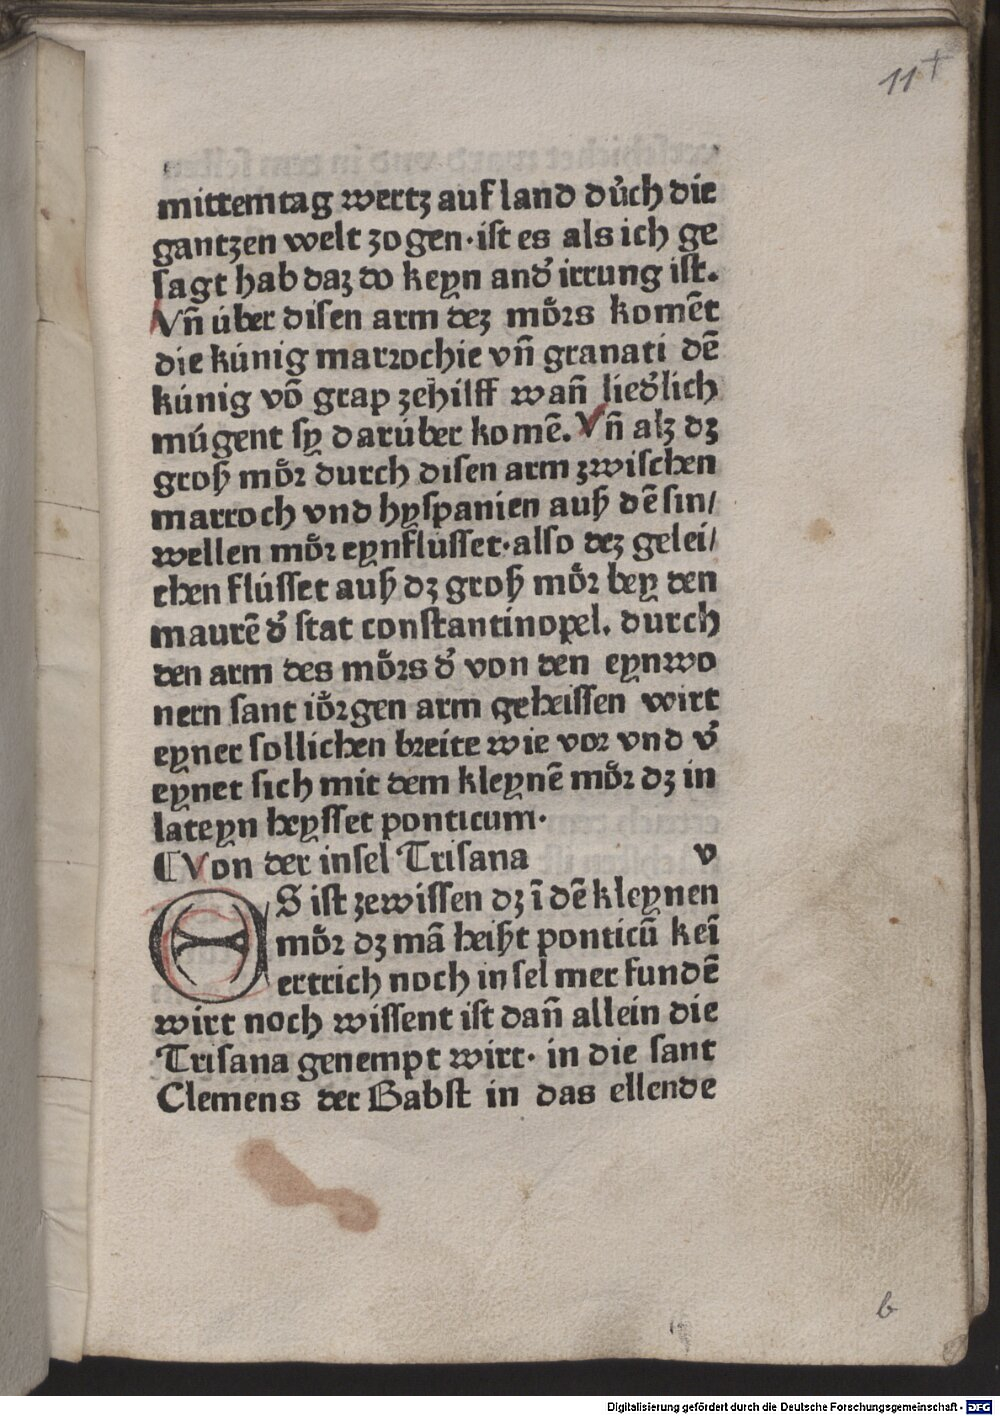 11+
mittemtag wertz auf land důch die
gantzen welt zogen·ist es als ich ge
sagt hab daz do keyn and᷑ irrung ist.
Vñ úber disen arm dez mo᷑rs komēt
die kúnig marrochie vñ granati dē
kúnig vō grap zehilff wañ lied᷑lich
múgent sy darúber komē. Vñ alz dz
groß moͤr durch disen arm zwischen
marroch vnd hyspanien auß dē sin/
wellen moͤr eynflússet·also dez gelei/
chen flússet auß dz groß moͤr bey den
maurē d᷑ stat constantinopel. durch
den arm des moͤrs d᷑ von den eynwo
nern sant ioͤrgen arm geheissen wirt
eyner sollichen breite wie vor vnd v᷑
eynet sich mit dem kleynē moͤr dz in
lateyn heysset ponticum·
¶Von der insel Trisana v
ES ist zewissen dz ī dē kleynen
moͤr dz mā heißt ponticū keī
ertrich noch insel mer fundē
wirt noch wissent ist dañ allein die
Trisana genempt wirt· in die sant
Clemens der Babst in das ellende
b
Digitalisierung gefördert durch die Deutsche Forschungsgemeinschaft - DFG